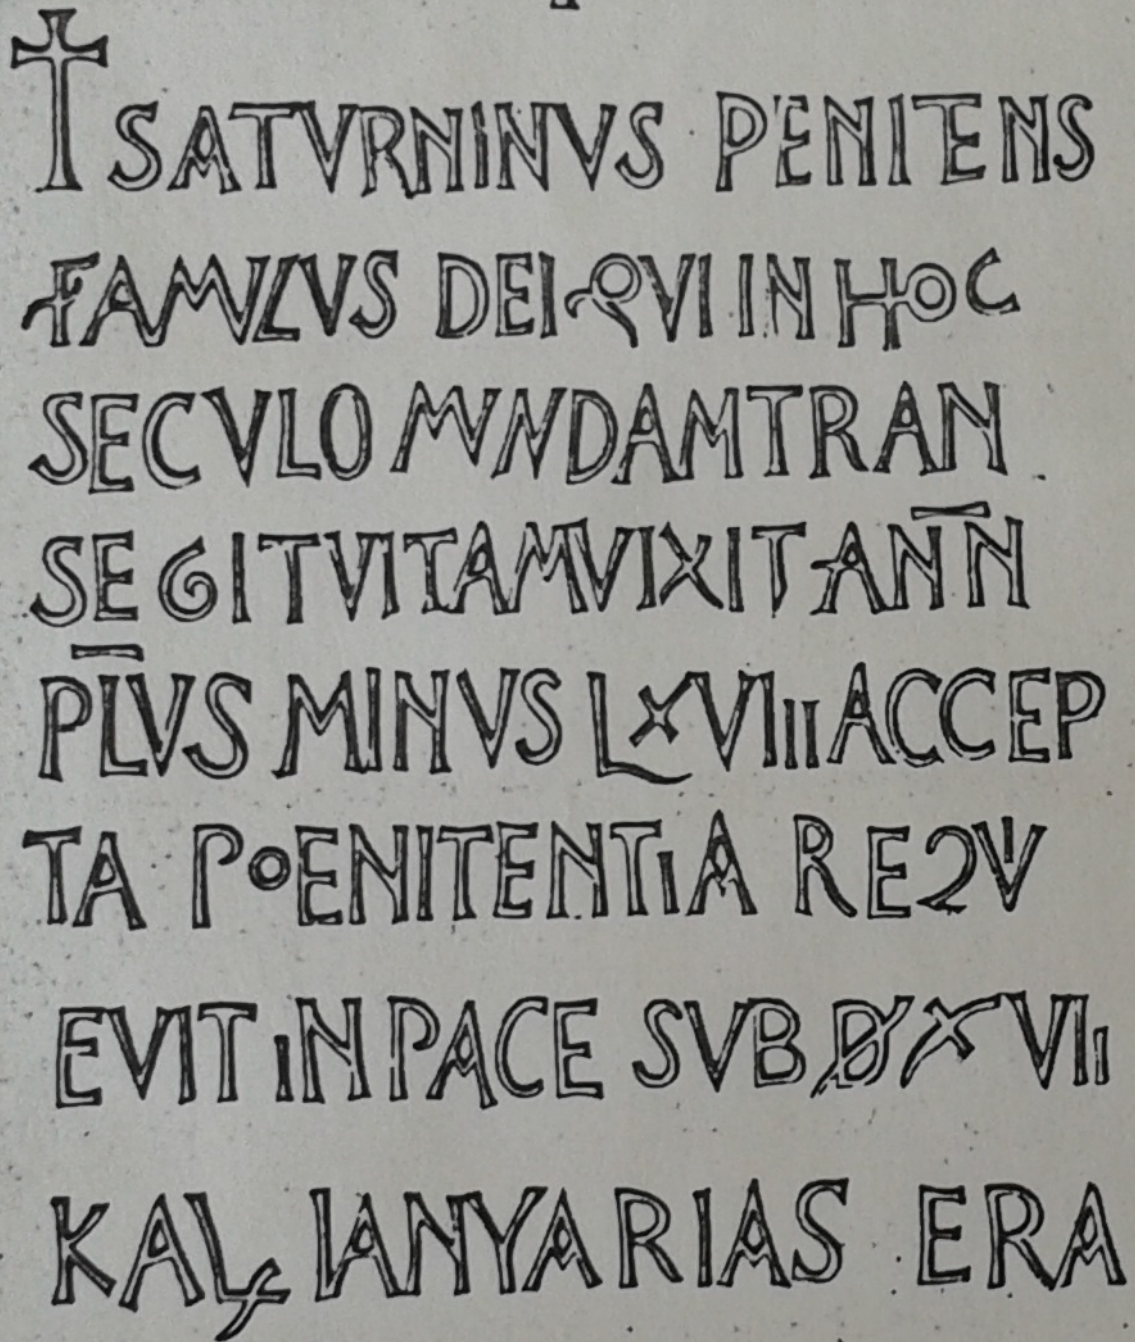 † SATVRNINVS PENITENS
FAMVLVS DEI QVI IN HOC
SECVLO MVNDAM TRAN
SEGIT VITAM VIXIT ANN̅
PL̅VS MINVS LXVIII ACCEP
TA POENITENTIA REQV
EVIT IN PACE SVB D XVII
KAL IANVARIAS ERA